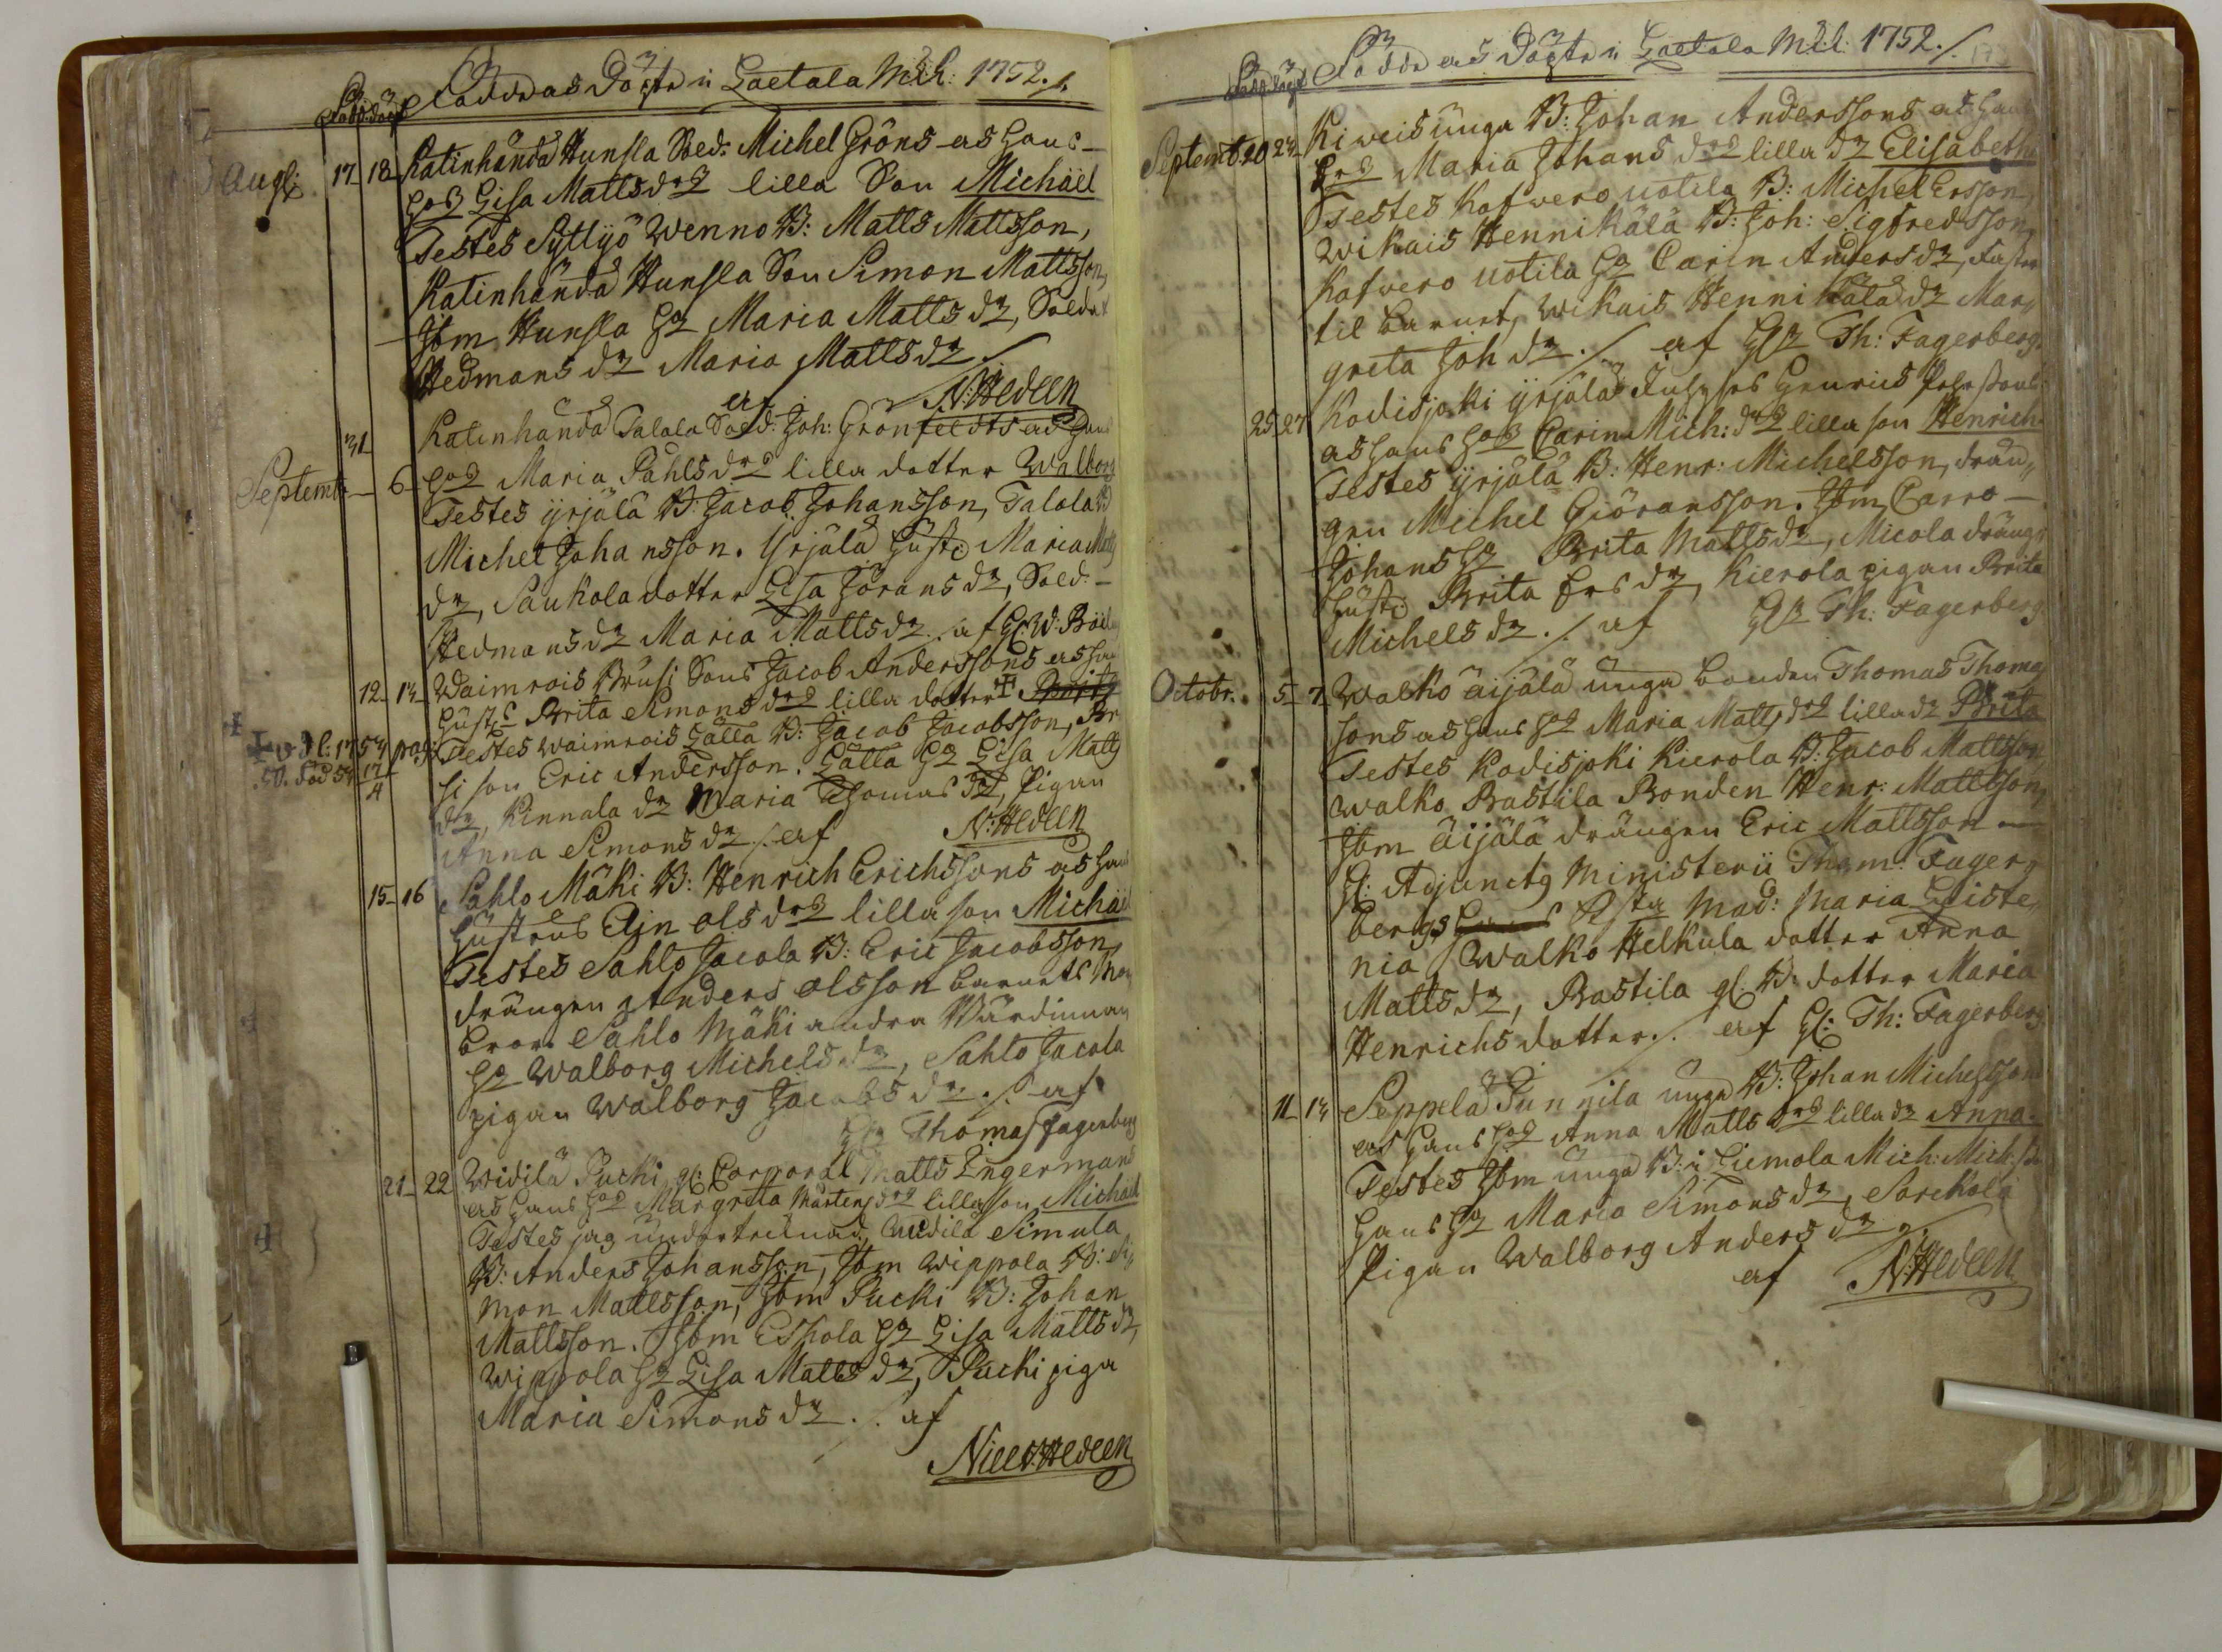 Född. döpt. Födde as Döpte i Laetala Mih: 1752./.
Augti 17 18 Katinhändä Hunsla Sold: Michel Gröns as hans
hos Lisa Matlsdrs lilla Son Michaël
Testes Syllyö Wenno B: Matls Matlsson,
Katinhändä Hunsla Son Simon Matlsson,
Ibm Hunsla hu Maria Matls dr, Soldat
Hedmans dr Maria Matlsdr ./.
af N: Hedeen
31 Katinhändä Talala Sold: Joh: Grönfeldts as hans
Septemb 6 hos Maria Påhlsdrs lilla dotter Walborg
Testes ÿrjälä B: Jacob Johansson, Talola B
Michel Johansson. Yrjälä hustr: Maria Matls
dr, Saukola dotter Lisa Jörans dr, Sold:
Hedmans dr Maria Matlsdr ./. af
12 14 Waimrois Brusi Sons Jacob Anderssons as hans
hustrs Brita Simonsdrs lilla dotter ‡ Brita
‡ v. pl: 1754 pag: Testes Waimrois Lälla B: Jacob Jacobsson, Br
50. född 54 17/4 si son Eric Andersson. Lälla hu Lisa Matls
dr, Kinnala dr Maria Thomas dr, Pigan
Anna Simonsdr ./. af N: Hedeen
15 16 Sahlo Mäki B: Henrich Erichssons as hans
hustrus Elin Olsdrs lilla son Michaël
Testes Sahlo Jacola B: Eric Jacobsson,
drängen Anders Olsson barnets Mor
bror. Sahlo Mäki andra Wärdinnan
hu Walborg Michelsdr, Sahlo Jacola
pigan Walborg Jacobsdr ./. af
Thomas Fagerberg
21 22 Widilä Pucki gl: Corporal Matls Ingermans
as hans hos Margreta Mårtensdrs lilla son Michaël
Testes jag undertecknad, Widilä Simula
B: Anders Johansson, Ibm Wippola B: Si,,
mon Matlsson, Ibm Pucki B: Johan
Matlsson. Ibm Eskola hu Lisa Matlsdr,
Wippola hu Lisa Matls dr, Pucki piga
Maria Simonsdr ./. af
Hedeen
Född. döpt. Födde as Döpte i Laetala Mil: 1752./.
Septemb. 20 24 Kiweis unga B: Johan Anderssons as hans
Maria Johans drs lilla dr Elisabetha
Testes Kafwero uotila B: Michel Ersson,
Wikais Hennikälä B: Joh: Sigfredsson,
Kafwero uotila hu Carin Andersdr, faster
til barnet, Wikais Hennikälä dr Mar,,
greta Joh dr ./. af Th: Fagerberg.
25 27 Kodisjoki ÿrjälä
as hans hos Carin Mich: drs lilla son Henrich
Testes ÿrjälä B: Henr: Michelsson, drän,,
gen Michel Giöransson. Ibm Carro
Johans hu Brita Matlsdr, Micola drängs
hustr: Brita Ersdr, Kierola pigan Brita
Michelsdr ./. af Th: Fagerberg
Octobr. 5 7 Walko äijälä unga bonden Thomas Thomas
sons as hans hos Maria Matlsdrs lilla dr Brita
Testes Kodisjoki Kierola B: Jacob Matlsson,
Walko Bastila Bonden Henr: Matlsson,
Ibm äijälä drängen Eric Matlsson
Adjunctg Ministerii Thom: Fager,,
bergs Mad: Maria Liste,,
nia, Walko Helkula dotter Anna
Matls dr, Bastila gl. B: dotter Maria
Henrichs dotter ./. af Th: Fagerberg
11 14 Seppelä Tunnila unga B: Johan Michelssons
as hans hos Anna Matls drs lilla dr Anna
Testes Ibm unga B: i Liemola Mich: Mich:ss
hans hu Maria Simonsdr, Sorckola
Pigan Walborg Andersdr ./.
af N: Hedeen